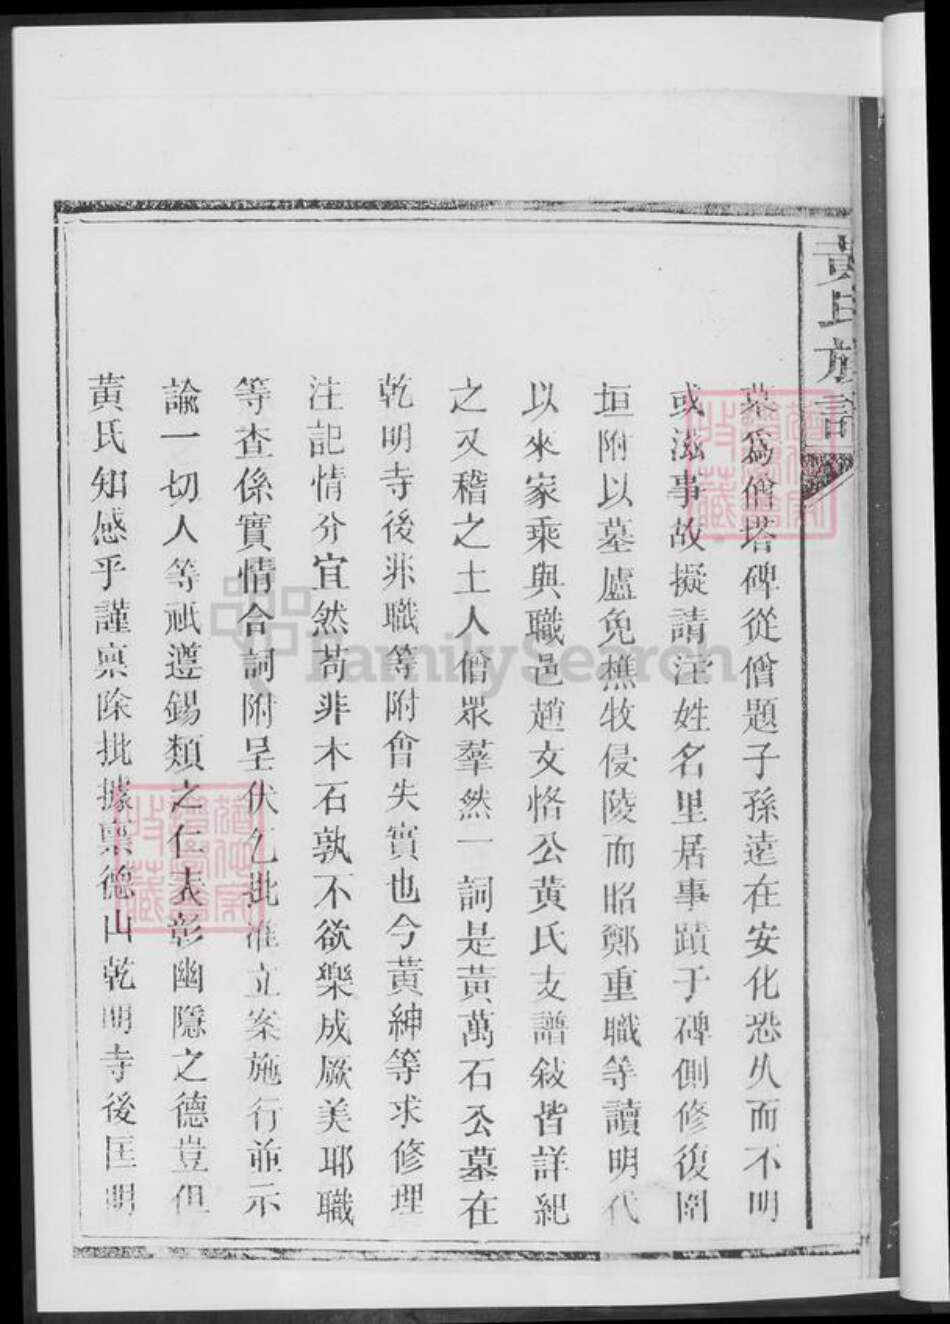 黃氏族譜
墓爲僧塔碑從僧題子孫遠在安化恐久而不明
或滋事故擬請注姓名里居事蹟于碑側修復圍
垣附以墓廬免樵牧侵陵而昭鄭重職等讀明代
以來家乘與職邑趙文恪公黃氏支譜敍皆詳紀
之又稽之土人僧眾羣然一詞是黃萬石公墓在
乾明寺後非職等附會失實也今黃紳等求修理
注記情分宜然苟非木石孰不欲樂成厥美耶職
等查係實情合詞附呈伏乞批准立案施行並示
諭一切人等祇遵錫類之仁表彰幽隱之德豈但
黃氏知感乎謹稟除批據稟德山乾明寺後匡明
FamilySearch